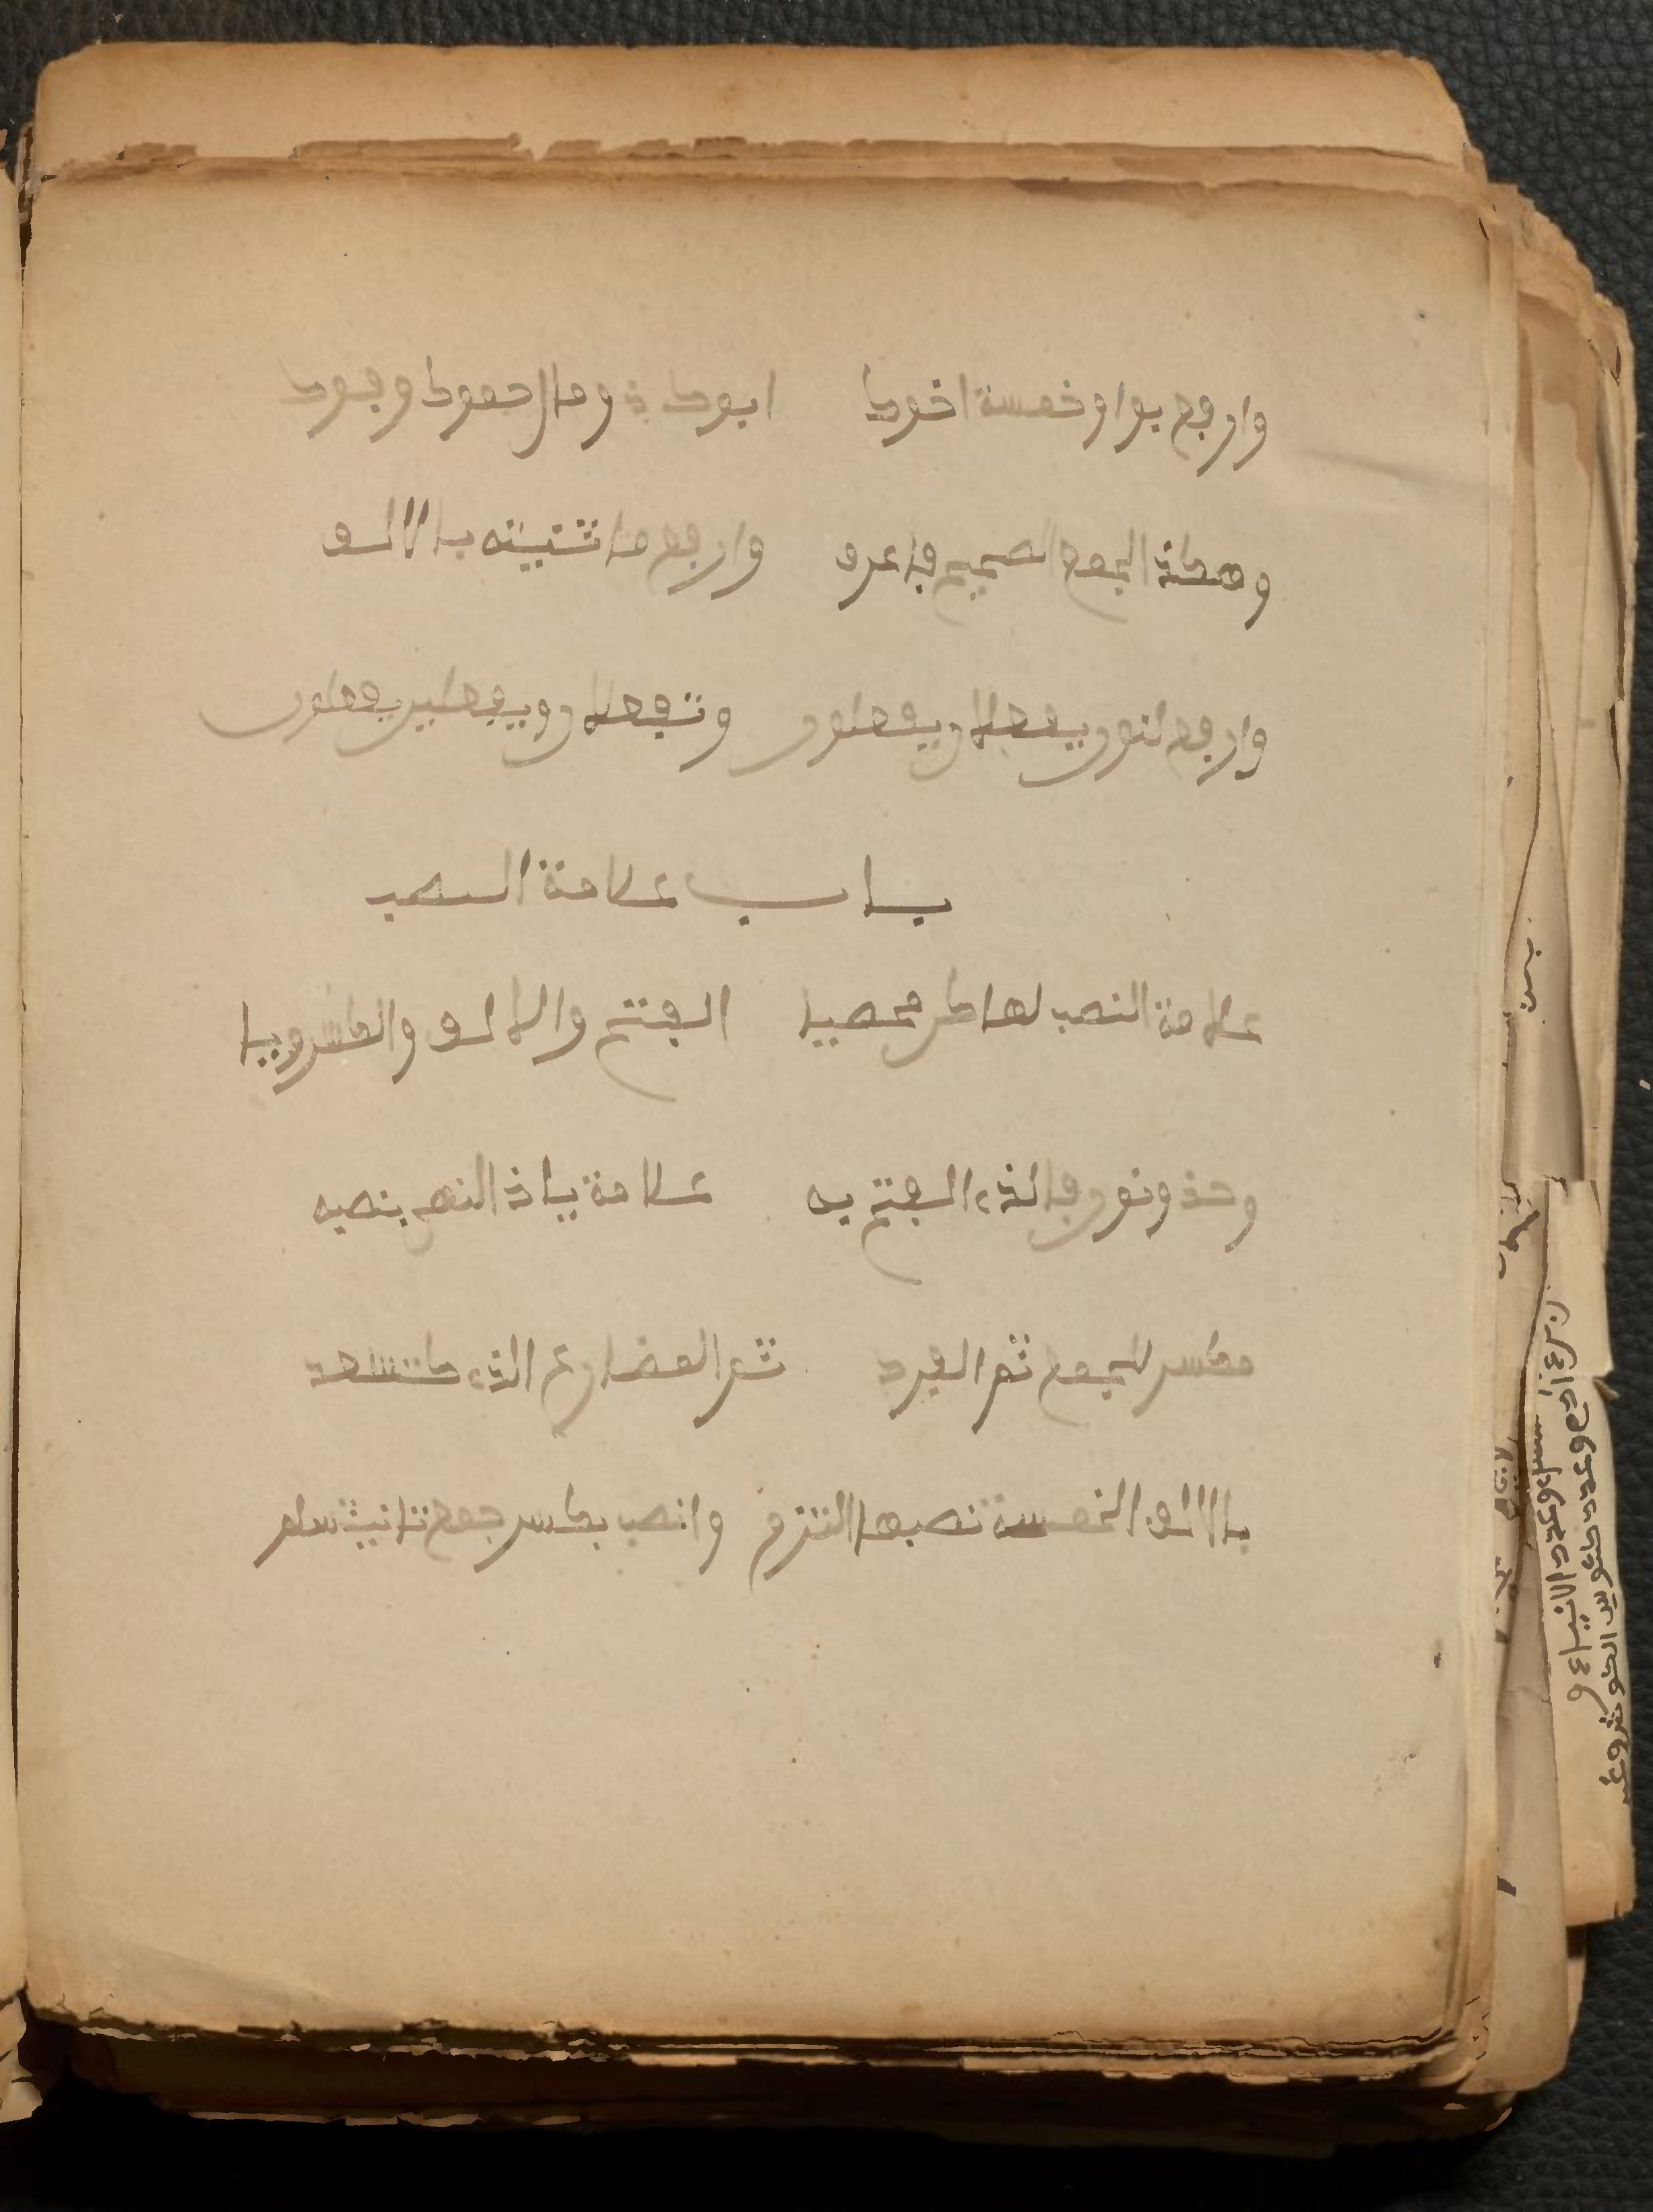 وارفع بواو خمسة اخوك ابوك ذو مال حموك وفوك
وهكذا الجمع الصحيح فاعرف وارفع ما ثنيته بالالف
وارفع بنون يفعلان يفعلون وتفعلان وتفعلين تفعلون
باب علامة النصب
علامة النصب لها كن محصيا الفتح والالف والكسر ويا
وحذف نون فالذي الفتح به علامة ياذا النهى بنصبه
مكسر الجموع ثم المفرد ثم المضارع الذي كتسعد
بالالف الخمسة نصبها التزم وانصب بكسر جمع تانيث سلم